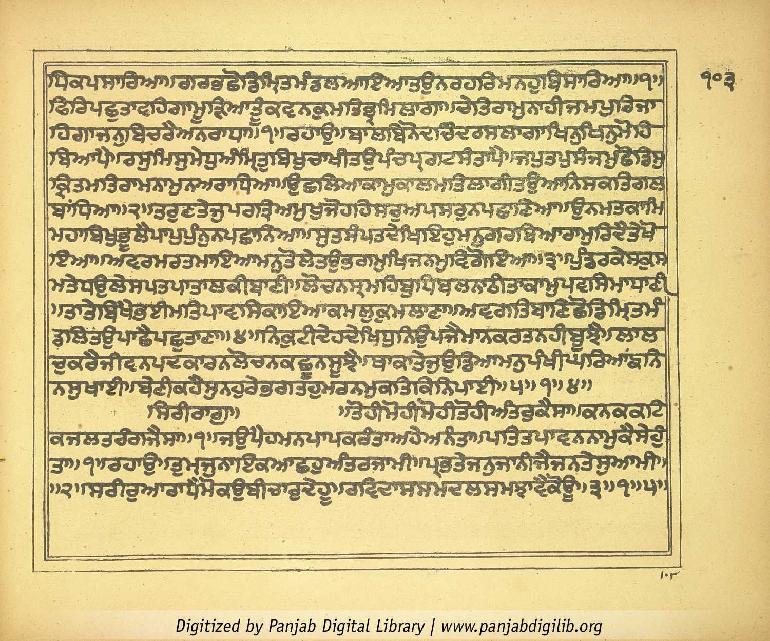 ਧਿਕਪਸਾਰਿਆ॥ਗਰਭਛੋਡਿਮ੍ਰਿਤਮੰਡਲਆਇਆਤਉਨਰਹਰਿਮਨਹੁਬਿਸਾਰਿਆ॥੧॥ ੧੦੩
ਫਿਰਿਪਛੁਤਾਵਹਿਗਾਮੂੜਿਆਤੂੰਕਵਨਕੁਮਤਿਭ੍ਰਮਿਲਾਗਾ॥ਚੇਤਿਰਾਮੁਨਾਹੀਜਮਪੁਰਿਜਾ
ਹਿਗਾਜਨੁਬਿਚਰੈਅਨਰਾਧਾ॥੧॥ਰਹਾਉ॥ਬਾਲਬਿਨੋਦਚਿੰਦਰਸਲਾਗਾਖਿਨੁਖਿਨੁਮੋਹਿ
ਬਿਆਪੈ॥ਰਸੁਮਿਸੁਮੇਧੁਅੰਮ੍ਰਿਤੁਬਿਖੁਚਾਖੀਤਉਪੰਚਪ੍ਰਗਟਸੰਤਾਪੈ॥ਜਪੁਤਪੁਸੰਜਮੁਛੋਡਿਸੁ
ਕ੍ਰਿਤਮਤਿਰਾਮਨਾਮੁਨਅਰਾਧਿਆ॥ਉਛਲਿਆਕਾਮੁਕਾਲਮਤਿਲਾਗੀਤਉਆਨਿਸਕਤਿਗਲ
ਬਾਂਧਿਆ॥੨॥ਤਰੁਣਤੇਜੁਪਰਤ੍ਰਿਅਮੁਖੁਜੋਹਹਿਸਰੁਅਪਸਰੁਨਪਛਾਣਿਆ॥ਉਨਮਤਕਾਮਿ
ਮਹਾਬਿਖੁਭੂਲੈਪਾਪੁਪੁੰਨੁਨਪਛਾਨਿਆ॥ਸੁਤਸੰਪਤਿਦੇਖਿਇਹੁਮਨੁਗਰਬਿਆਰਾਮੁਰਿਦੈਤੇਖੋ
ਇਆ॥ਅਵਰਮਰਤਮਾਇਆਮਨੁਤੋਲੇਤਉਭਗਮੁਖਿਜਨਮੁਵਿਗੋਇਆ॥੩॥ਪੁੰਡਰਕੇਸਕੁਸ
ਮਤੇਧਉਲੇਸਪਤਪਾਤਾਲਕੀਬਾਣੀ॥ਲੋਚਨਸ੍ਰਮਹਿਬੁਧਿਬਲਨਾਠੀਤਾਕਾਮੁਪਵਸਿਮਾਧਾਣੀ
॥ਤਾਤੇਬਿਖੈਭਈਮਤਿਪਾਵਸਿਕਾਇਆਕਮਲੁਕੁਮਲਾਣਾ॥ਅਵਗਤਿਬਾਣਿਛੋਡਿਮ੍ਰਿਤਮੰ
ਡਲਿਤਉਪਾਛੈਪਛੁਤਾਣਾ॥੪॥ਨਿਕੁਟੀਦੇਹਦੇਖਿਧੁਨਿਉਪਜੈਮਾਨਕਰਤਨਹੀਬੂਝੈ॥ਲਾਲ
ਚੁਕਰੈਜੀਵਨਪਦਕਾਰਨਲੋਚਨਕਛੂਨਸੂਝੈ॥ਥਾਕਾਤੇਜੁਉਡਿਆਮਨੁਪੰਖੀਘਰਿਆਂਗਨਿ
ਨਸੁਖਾਈ॥ਬੇਣੀਕਹੈਸੁਨਹੁਰੇਭਗਤਹੁਮਰਨਮੁਕਤਿਕਿਨਿਪਾਈ॥੫॥੧॥੪॥
ਸਿਰੀਰਾਗੁ॥ ॥ਤੋਹੀਮੋਹੀਮੋਹੀਤੋਹੀਅੰਤਰੁਕੈਸਾ॥ਕਨਕਕਟਿ
ਕਜਲਤਰੰਗਜੈਸਾ॥੧॥ਜਉਪੈਹਮਨਪਾਪਕਰੰਤਾਅਹੇਅਨੰਤਾ॥ਪਤਿਤਪਾਵਨਨਾਮੁਕੈਸੇਹੁੰ
ਤਾ॥੧॥ਰਹਾਉ॥ਤੁਮ੍ਹਜੁਨਾਇਕਆਛਹੁਅੰਤਰਜਾਮੀ॥ਪ੍ਰਭਤੇਜਨੁਜਾਨੀਜੈਜਨਤੇਸੁਆਮੀ॥
॥੨॥ਸਰੀਰੁਆਰਾਧੈਮੋਕਉਬੀਚਾਰੁਦੇਹੂ॥ਰਵਿਦਾਸਸਮਦਲਸਮਝਾਵੈਕੋਊ॥੩॥੧॥੫॥
Digitized by Panjab Digital Library | www.panjabdigilib.org